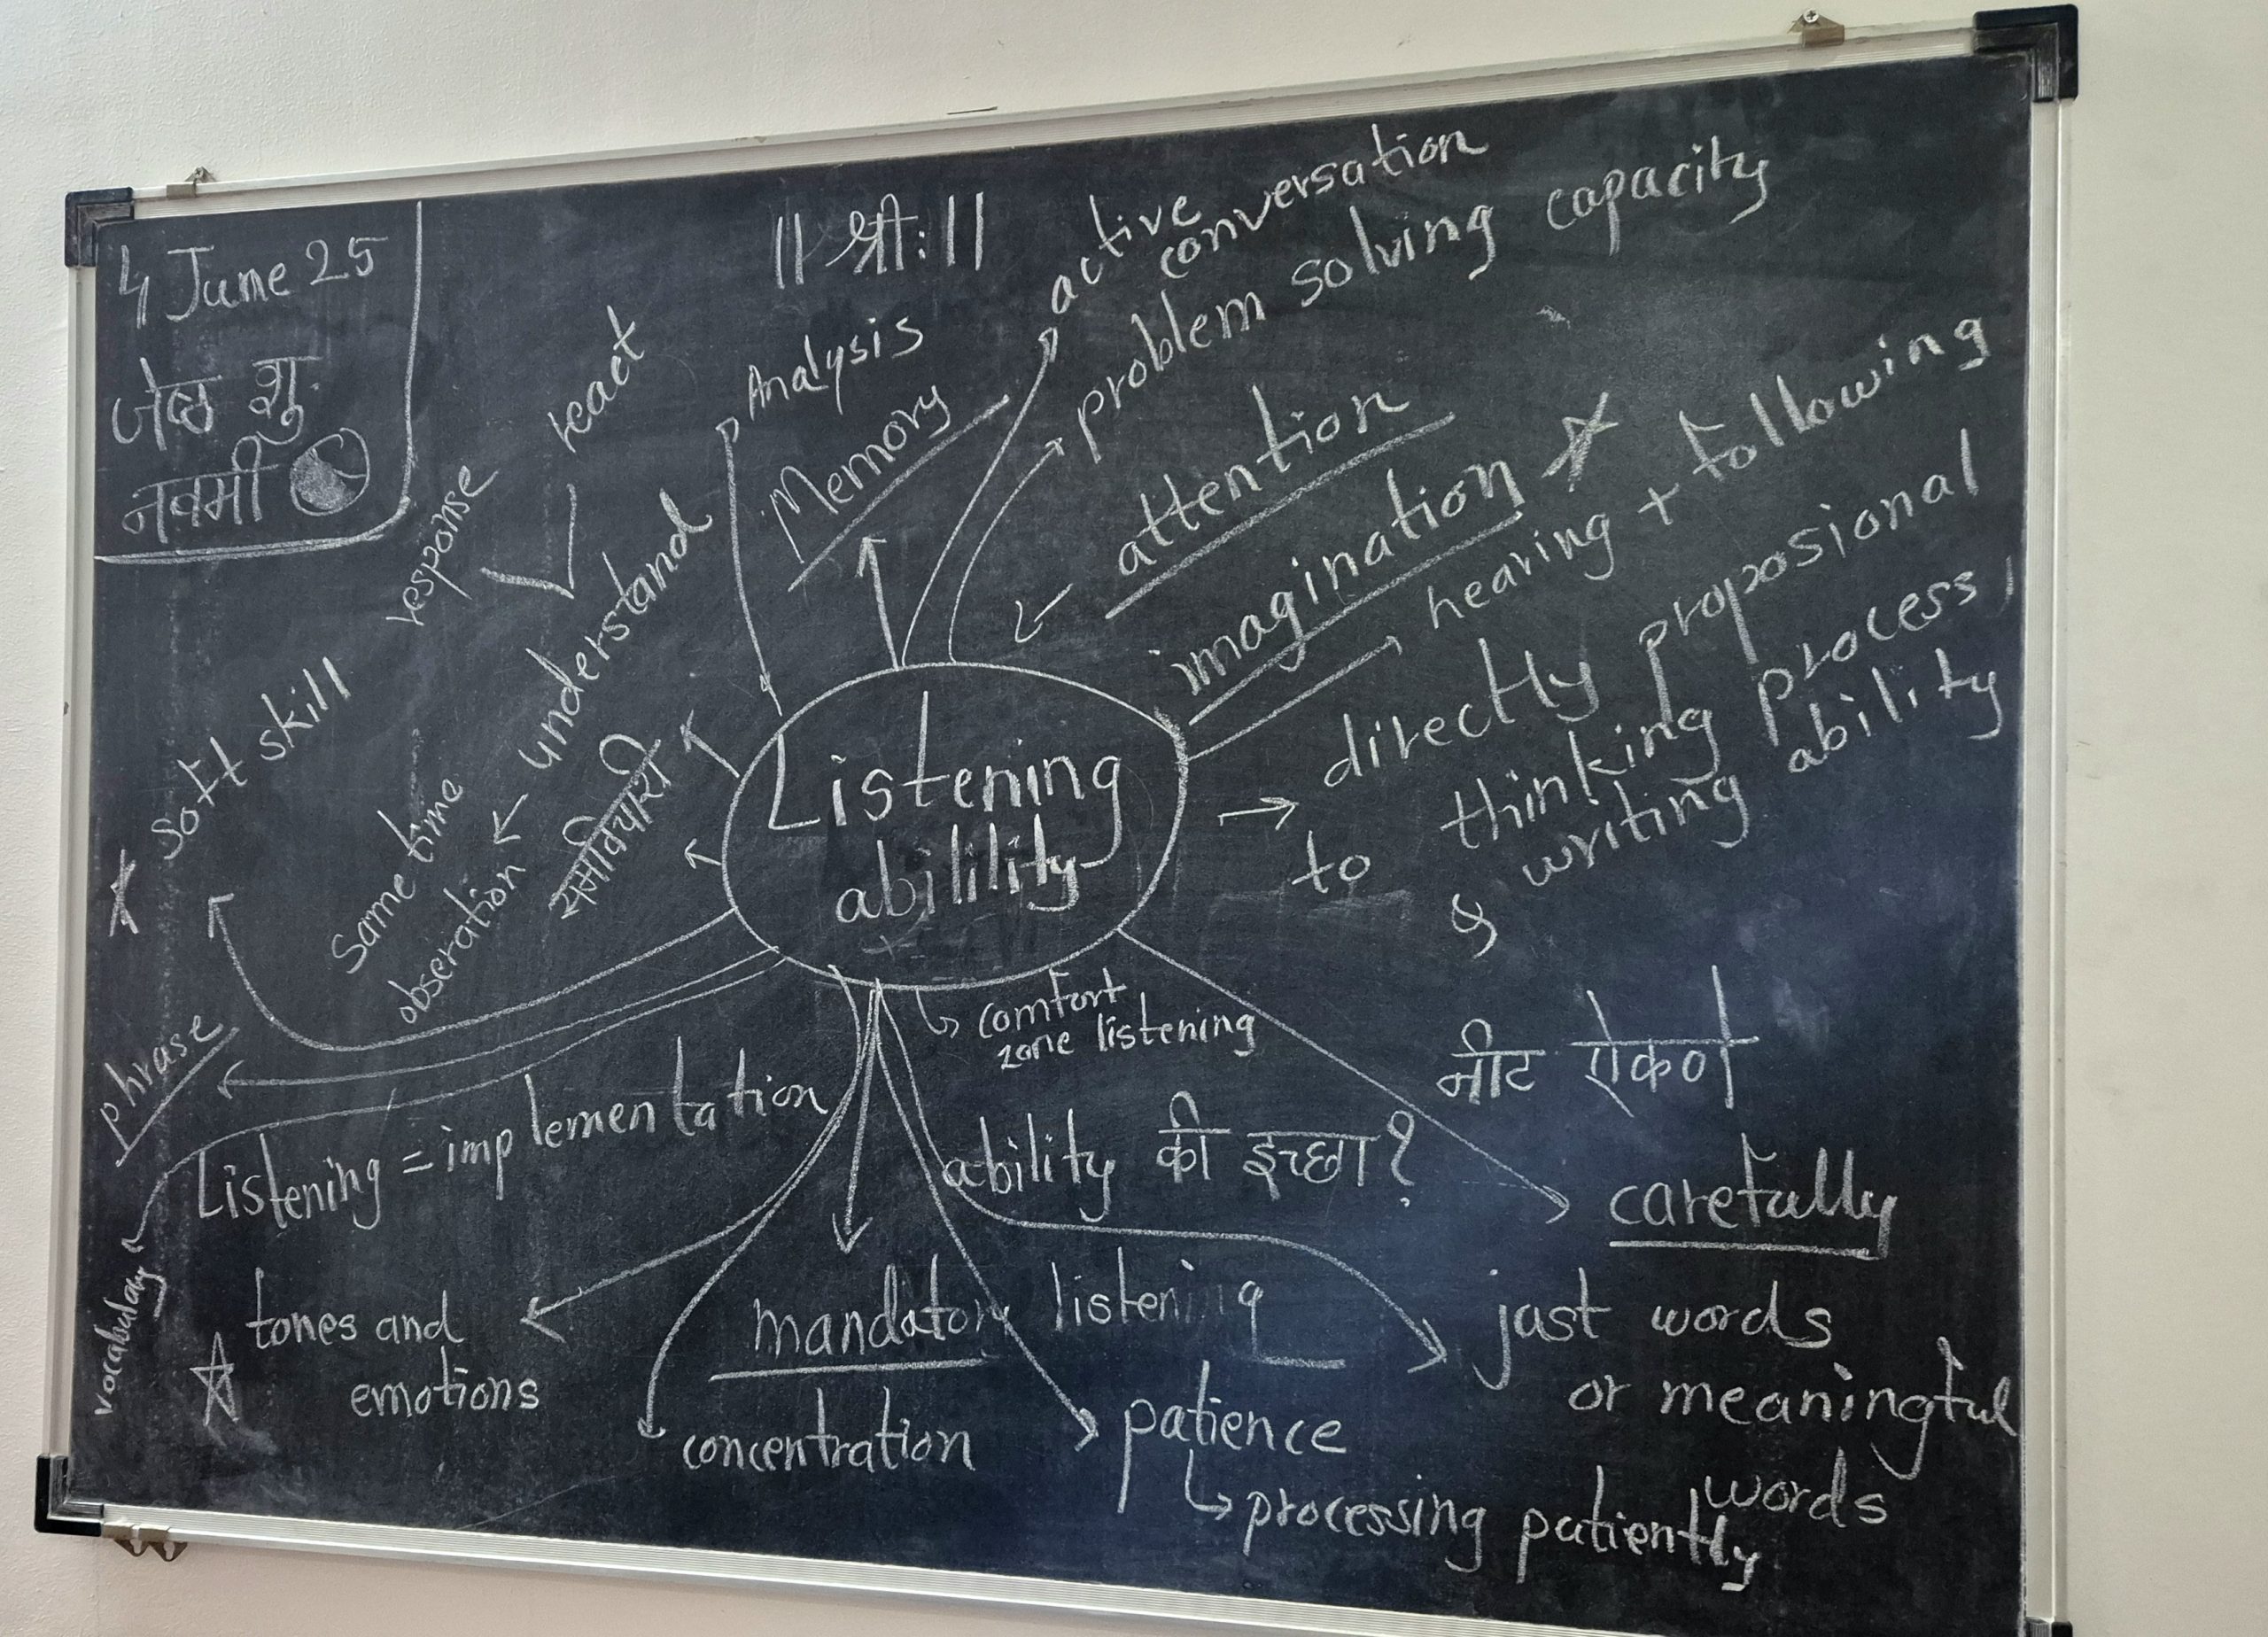 4 June 25
जेष्ठ शु.
नवमी
|| श्री: ||
active
conversation
problem solving capacity
Analysis
Memory
react
response
understand
attention
imagination
hearing + following
directly proposional
to thinking process,
& writing ability
Soft skill
Same time
obseration
Listening
abilility
comfort
zone listening
नीट ऐकणे
Phrase
Listening = implementation
ability की इच्छा?
carefully
vocabulay
tones and
emotions
mandatory listening
just words
or meaningful
words
concentration
patience
processing patiently